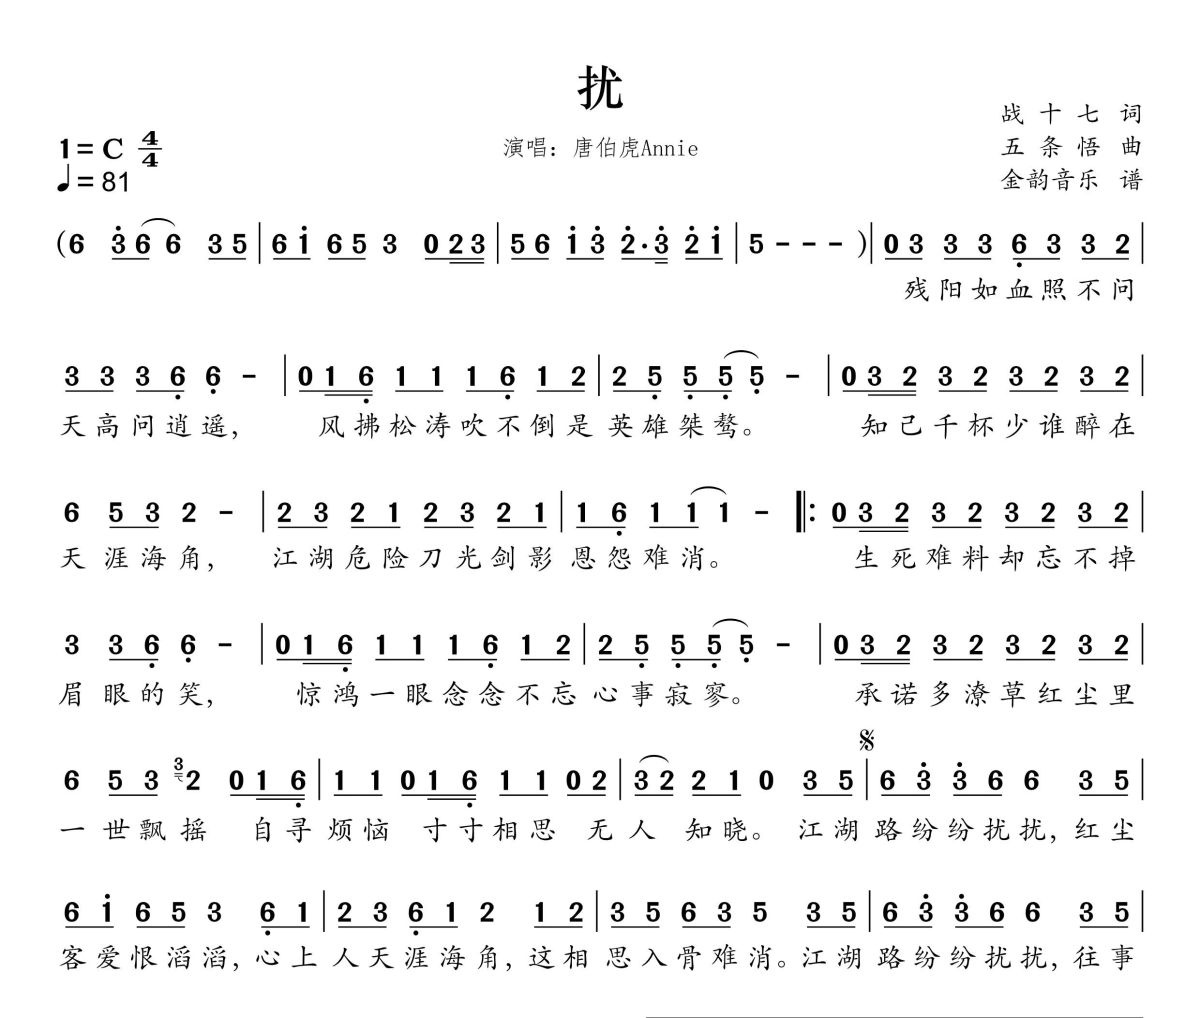 扰
战十七 词
1=C 4/4
演唱：唐伯虎Annie
五条悟 曲
♩=81
金韵音乐 谱
(6 3̇6 6 35|61̇ 65 3 023|56 1̇3̇ 2̇·3̇ 2̇1̇|5 - - - )|03 33 6̣3 32|
残阳如血照不问
33 36̣ 6̣ -|016̣ 11 16̣ 12|25̣ 5̣5̣ 5̣ -|032 32 32 32|
天高问逍遥， 风拂松涛吹不倒是英雄桀骜。 知己千杯少谁醉在
6 53 2 -|23 21 23 21|16̣ 11 1 -‖:032 32 32 32|
天涯海角， 江湖危险刀光剑影恩怨难消。 生死难料却忘不掉
3 36̣ 6̣ -|016̣ 11 16̣ 12|25̣ 5̣5̣ 5̣ -|032 32 32 32|
眉眼的笑， 惊鸿一眼念念不忘心事寂寥。 承诺多潦草红尘里
𝄋
6 53 ³2 016̣|11 016̣ 11 02|32 21 0 35|63̇ 3̇6 6 35|
一世飘摇 自寻烦恼 寸寸相思 无人 知晓。 江湖路纷纷扰扰，红尘
61̇ 65 3 6̣1|23 6̣1 2 12|35 63 5 35|63̇ 3̇6 6 35|
客爱恨滔滔，心上人天涯海角，这相思入骨难消。江湖路纷纷扰扰，往事